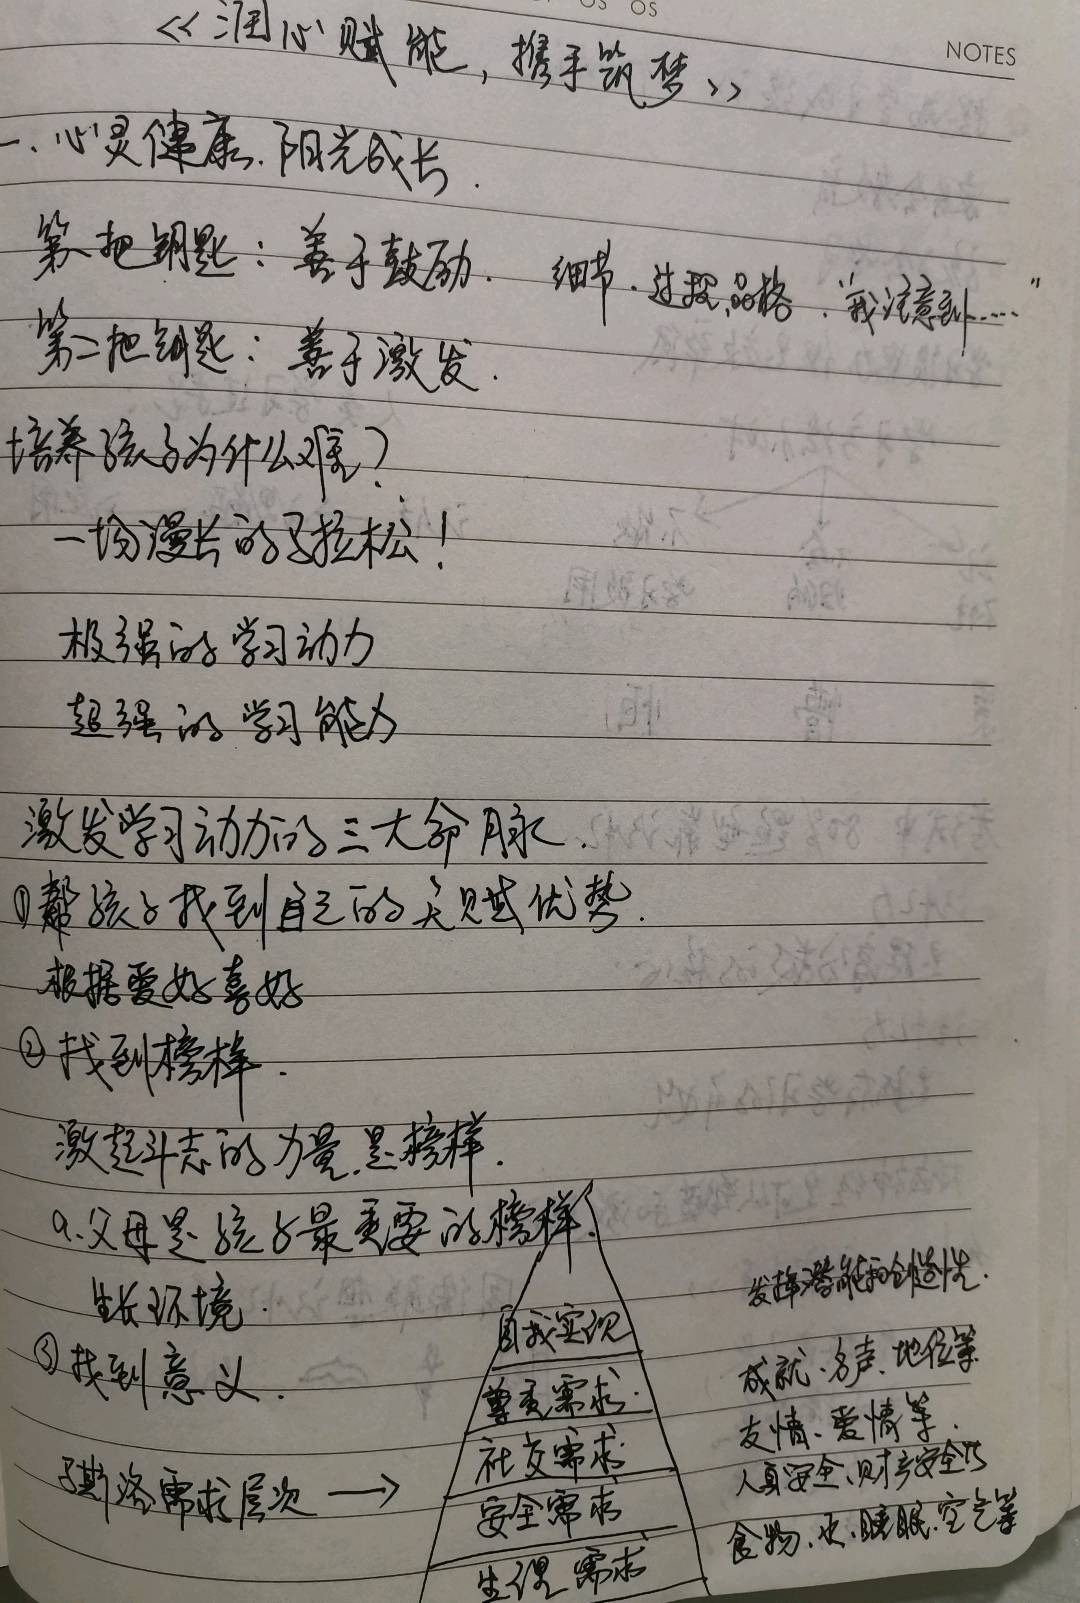 NOTES
《润心赋能，携手筑梦》
一.心灵健康.阳光成长.
第一把钥匙：善于鼓励. 细节.过程.品格."我注意到……"
第二把钥匙：善于激发.
培养孩子为什么难？
一场漫长的马拉松！
极强的学习动力
超强的学习能力
激发学习动力的三大命脉.
①帮孩子找到自己的天赋优势.
根据爱好喜好
②找到榜样.
激起斗志的力量是榜样.
a.父母是孩子最重要的榜样.
生长环境.
③找到意义.
马斯洛需求层次 →
自我实现 发挥潜能和创造性.
尊重需求. 成就.名声.地位等
社交需求 友情、爱情等.
安全需求 人身安全、财产安全
生理需求 食物.水.睡眠.空气等